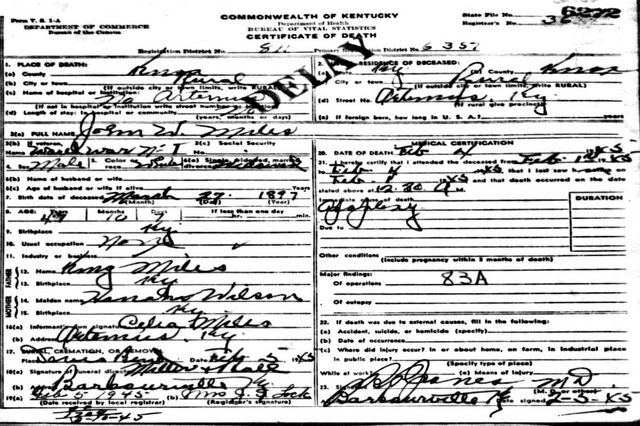 Form V. S. 1-A
DEPARTMENT OF COMMERCE
Bureau of the Census
COMMONWEALTH OF KENTUCKY
Department of Health
BUREAU OF VITAL STATISTICS
CERTIFICATE OF DEATH
State File No. 6272
Registrar's No. 36
Registration District No. Primary Registration District No. 6357
DELAY
1. PLACE OF DEATH:
(a) County Knox
(b) City or town Rural
(If outside city or town limits, write RURAL)
(c) Name of hospital or institution:
Artemus
(If not in hospital or institution write street number
(d) Length of stay: In hospital or community
(years, months or days)
2. RESIDENCE OF DECEASED:
(a) State Ky (b) County Knox
(c) City or town Rural
(If outside city or town limits, write RURAL)
(d) Street No. Artemus, Ky
(If rural give precinct)
(e) If foreign born, how long in U. S. A.? years
3. (a) FULL NAME John W. Miles
3. (b) If veteran, name war World War No I
3. (c) Social Security No.
4. Sex Male 5. Color or race White 6. (a) Single, widowed, married, divorced
6. (b) Name of husband or wife
6. (c) Age of husband or wife if alive Years
7. Birth date of deceased March 27 1897
(Month) (Day) (Year)
8. AGE: 47 10 If less than one day
hr. min.
9. Birthplace Ky
10. Usual occupation None
11. Industry or business
FATHER
12. Name King Miles
13. Birthplace Ky
MOTHER
14. Maiden name Wilson
15. Birthplace Ky
16. (a) Informant's signature Celia Miles
(b) Address Artemus, Ky.
17. BURIAL, CREMATION, OR REMOVAL
Feb 5 1945
18. (a) Signature of funeral director Miller & Hall
(b) Address Barbourville Ky.
19. (a) Feb 5 1945 (b) Mrs Lock
(Date received by local registrar) (Registrar's signature)
MEDICAL CERTIFICATION
20. DATE OF DEATH Feb 1945
21. I hereby certify that I attended the deceased from Feb 1945
to Feb 45 that I last saw
Feb 45 and that death occurred on the date
stated above at 12:30 A
Immediate cause of death
DURATION
Due to
Other conditions
(Include pregnancy within 3 months of death)
Major findings:
Of operations 83A
Of autopsy
22. If death was due to external causes, fill in the following:
(a) Accident, suicide, or homicide (specify)
(b) Date of occurrence
(c) Where did injury occur? In or about home, on farm, in industrial place
in public place?
(Specify type of place)
While at work? (e) Means of injury
23. Jones M.D.
Barbourville Ky signed 2-3-45